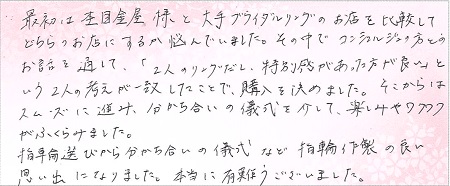 最初は杢目金屋様と大手ブライダルリングのお店を比較して
どちらのお店にするか悩んでいました。その中でコンシェルジュの方との
お話を通して、「2人のリングだし、特別感があった方が良い」と
いう2人の考えが一致したことで、購入を決めました。そこからは
スムーズに進み、分かち合いの儀式を介して、楽しみやワクワク
がふくらみました。
指輪選びから分かち合いの儀式など指輪作製の良い
思い出になりました。本当に有難うございました。